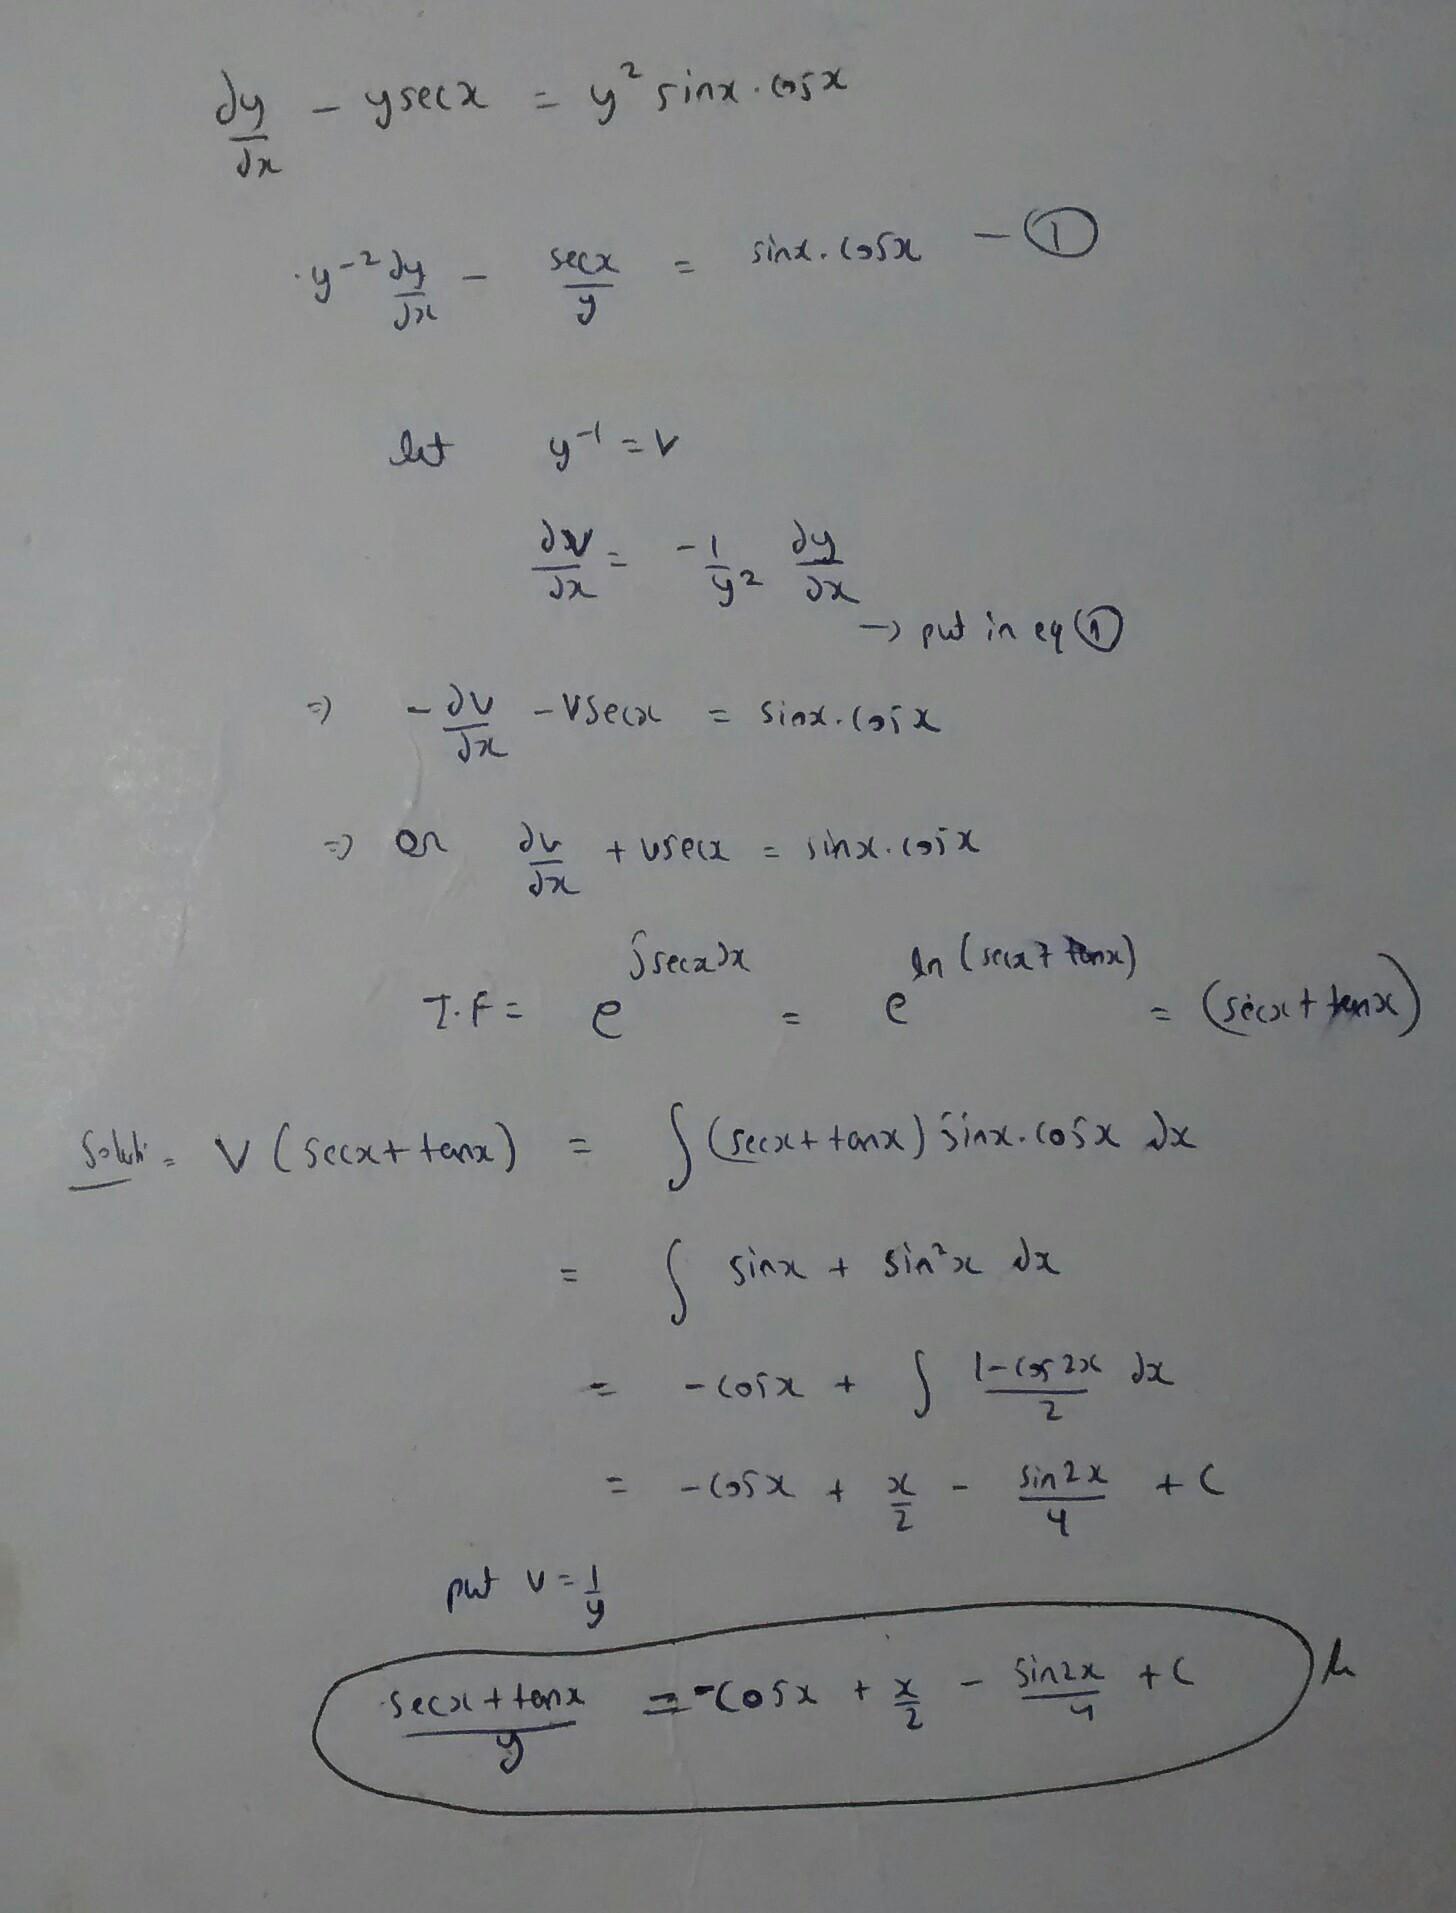 dy/dx - y secx = y² sinx . cosx
y⁻² dy/dx - secx/y = sinx . cosx - ①
let y⁻¹ = v
dv/dx = -1/y² dy/dx
→ put in eq ①
⇒ - dv/dx - v secx = sinx . cosx
⇒ or dv/dx + v secx = sinx . cosx
I.F = e^∫secxdx = e^ln(secx + tanx) = (secx + tanx)
V (secx + tanx) = ∫(secx + tanx) sinx . cosx dx
= ∫ sinx + sin²x dx
= - cosx + ∫ 1-cos2x/2 dx
= - cosx + x/2 - sin2x/4 + C
put v = 1/y
secx + tanx/y = - cosx + x/2 - sin2x/4 + C